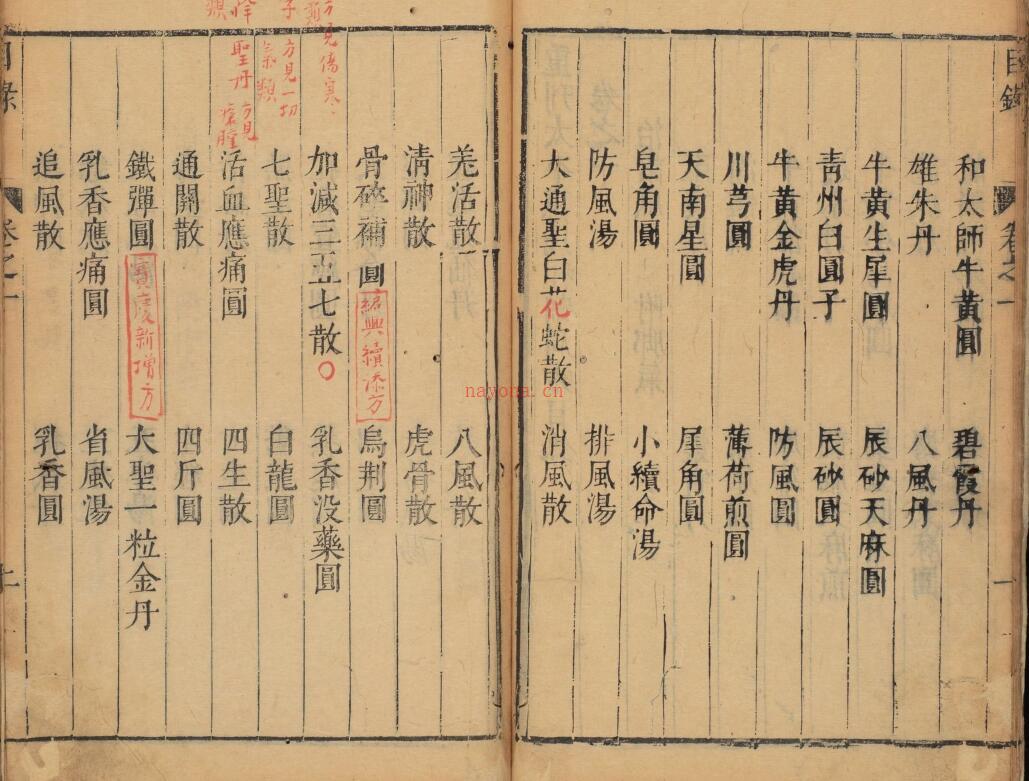 目錄
卷之一
一
和太師牛黃圓 碧霞丹
雄朱丹 八風丹
牛黃生犀圓 辰砂天麻圓
青州白圓子 辰砂圓
牛黃金虎丹 防風圓
川芎圓 薄荷煎圓
天南星圓 犀角圓
皂角圓 小續命湯
防風湯 排風湯
大通聖白花蛇散 消風散
羌活散 八風散
清神散 虎骨散
骨碎補圓 紹興續添方 烏荆圓
加減三五七散 乳香没藥圓
七聖散 白龍圓
活血應痛圓 四生散
通關散 四斤圓
鐵彈圓 寳慶新增方 大聖一粒金丹
乳香應痛圓 省風湯
追風散 乳香圓
目錄
卷之一
方見傷寒
子 方見一切
氣類
聖丹 方見
瘡腫
nayona.cn